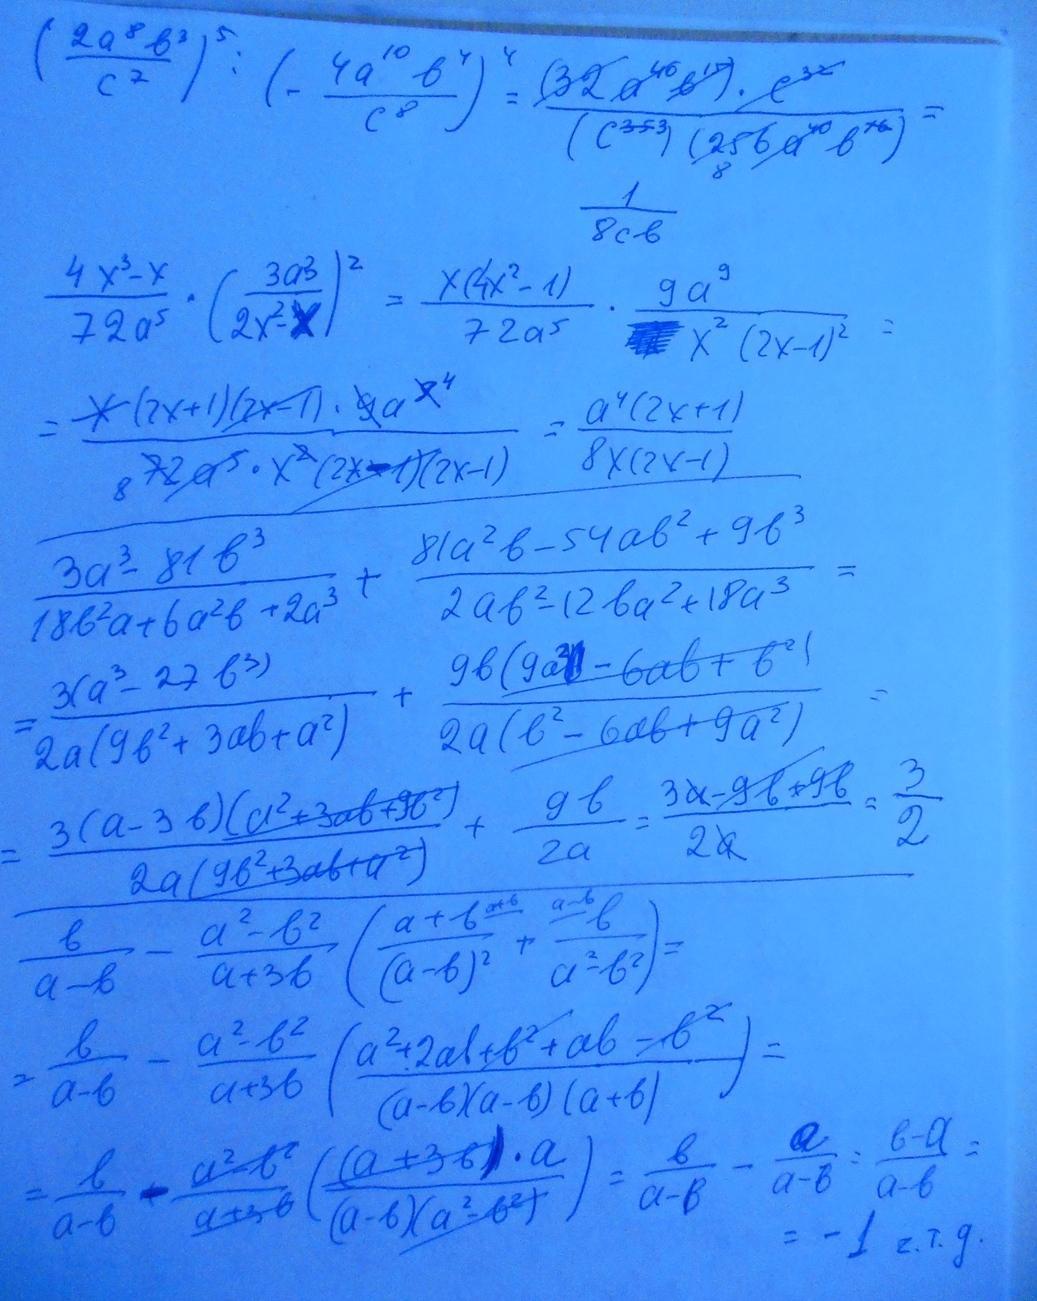 (2a⁸b³/c⁷)⁵ : (-4a¹⁰b⁴/c⁸)⁴ = (32a⁴⁰b¹⁵)·c³²/((c³⁵³)(256a⁴⁰b¹⁶)) =
8
1/(8cb)
(4x³-x)/(72a⁵) · (3a³/(2x²-x))² = x(4x²-1)/(72a⁵) · 9a⁹/(x²(2x-1)²) =
= x(2x+1)(2x-1)·9a⁴/(8 72a⁵·x²(2x-1)(2x-1)) = a⁴(2x+1)/(8x(2x-1))
(3a³-81b³)/(18b²a+6a²b+2a³) + (81a²b-54ab²+9b³)/(2ab²-12ba²+18a³) =
= 3(a³-27b³)/(2a(9b²+3ab+a²)) + 9b(9a²-6ab+b²)/(2a(b²-6ab+9a²)) =
= 3(a-3b)(a²+3ab+9b²)/(2a(9b²+3ab+a²)) + 9b/2a = (3a-9b+9b)/2a = 3/2
b/(a-b) - (a²-b²)/(a+3b) ((a+b)/(a-b)² ᵃ⁺ᵇ + ᵃ⁻ᵇ b/(a²-b²)) =
= b/(a-b) - (a²-b²)/(a+3b) ((a²+2ab+b²+ab-b²)/((a-b)(a-b)(a+b))) =
= b/(a-b) - (a²-b²)/(a+3b) ((a+3b)·a/((a-b)(a²-b²))) = b/(a-b) - a/(a-b) = (b-a)/(a-b) =
= -1 ч.т.д.